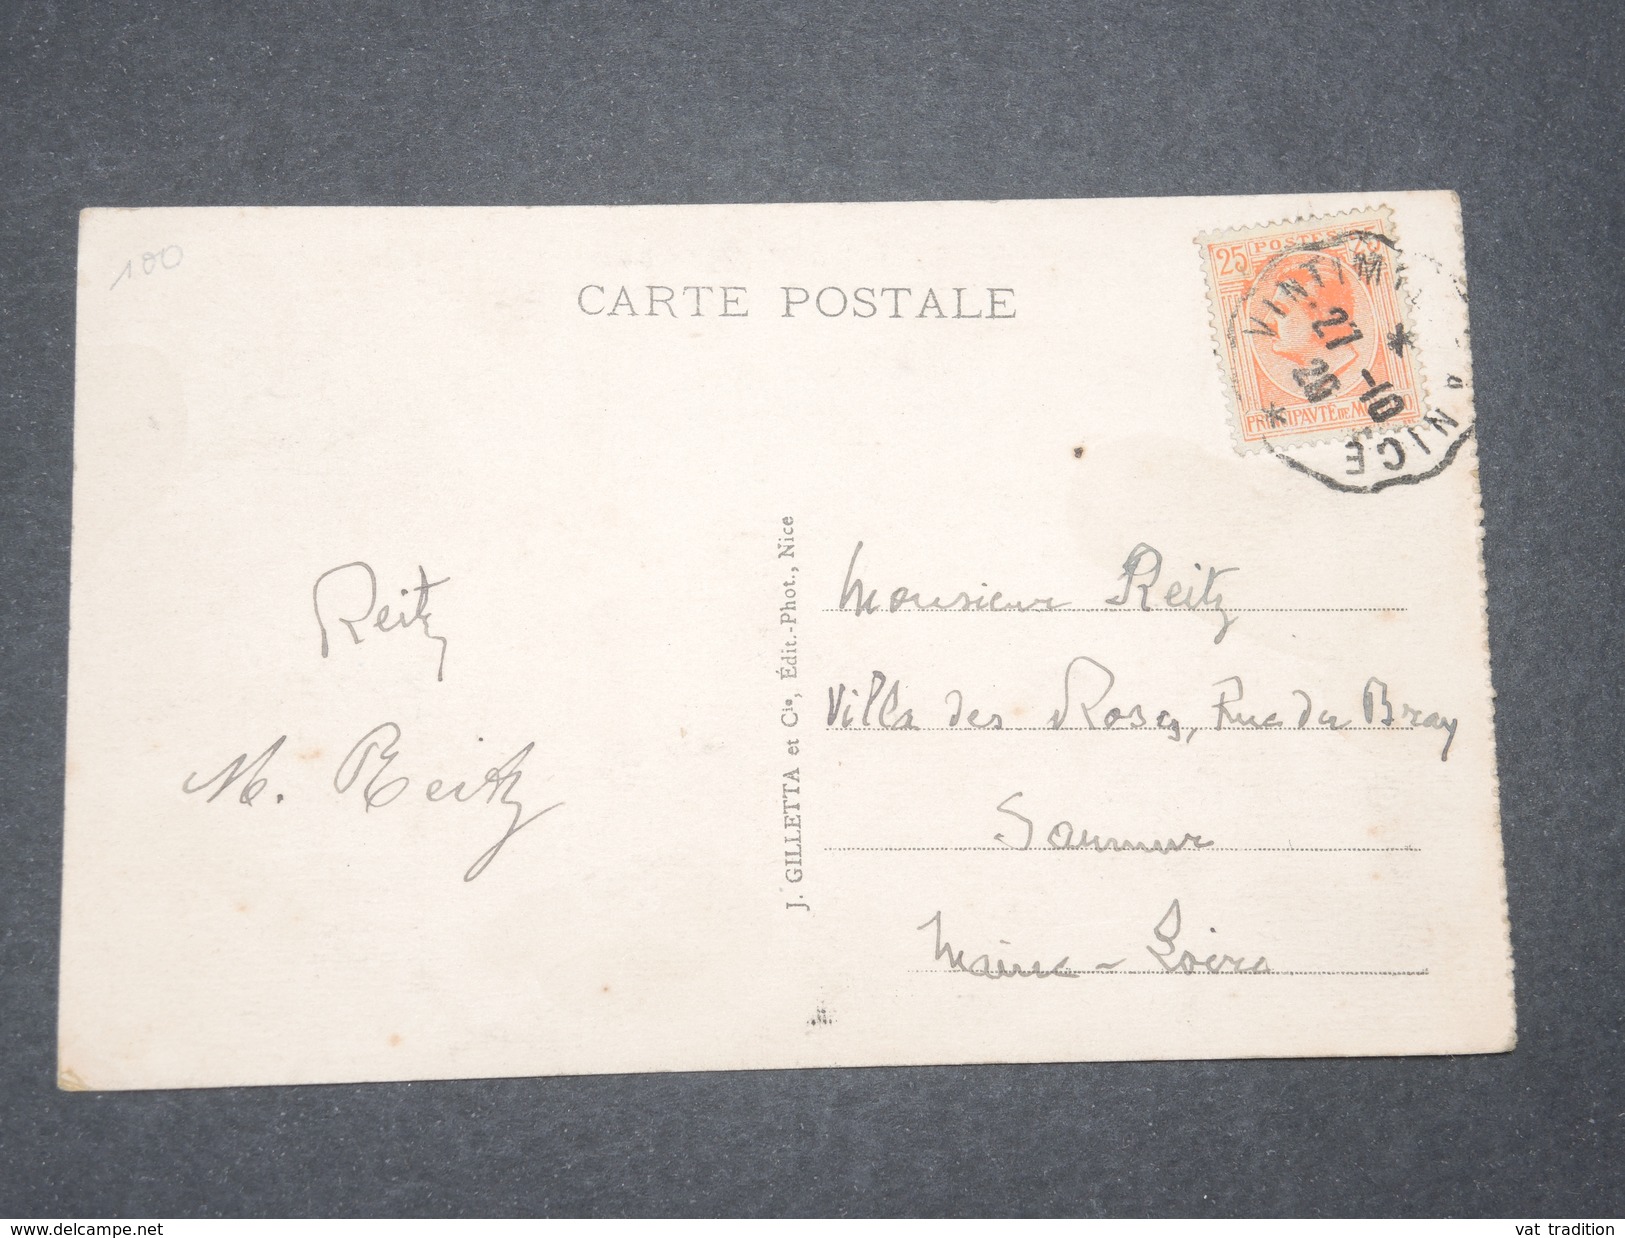 100
CARTE POSTALE
25 POSTES 25
PRINCIPAVTÉ DE MONACO
VINTIMI
27
-10
26
NICE
Reitz
M. Reitz
J. GILLETTA et Cie, Édit.-Phot., Nice
Monsieur Reitz
Villa des Roses, Rue du Bray
Saumur
Maine-Loire
www.delcampe.net
vat tradition